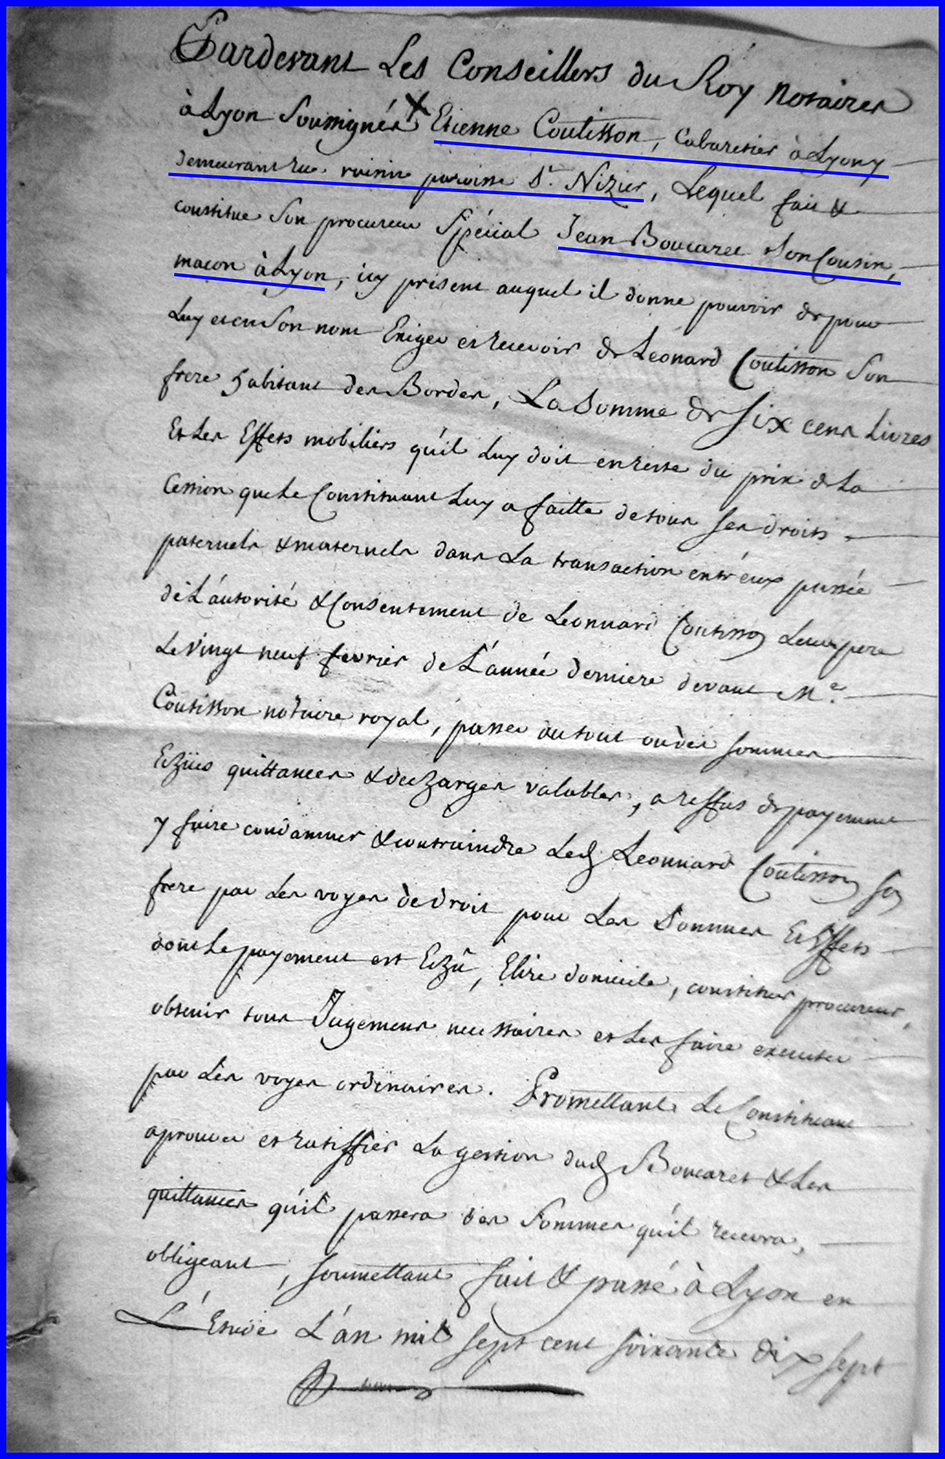 Pardevant Les Conseillers du Roy notaires
à Lyon Soussignés X Etienne Coutisson, cabaretier à Lyon y
demeurant rue raisin paroisse St. Nizier, Lequel fait &
constitue Son procureur Spécial Jean Boucaret Son Cousin,
macon à Lyon, icy présent auquel il donne pouvoir de pour
Luy et en Son nom Exiger et recevoir de Léonard Coutisson Son
frere habitant des Bordes, La Somme de Six cens Livres
Et Les Effets mobiliers qu'il Luy doit en reste du prix de La
Cession que Le Constituant Luy a faitte de tous ses droits
paternels & maternels dans La transaction entr'eux passée
de L'autorité & Consentement de Leonnard Coutisson Leur pere
Le vingt neuf fevrier de L'année derniere devant Me.
Coutisson notaire royal, passer du tout ou des sommes
Echües quittances & décharges valables, a reffus de payement
y faire condamner & contraindre Led Leonnard Coutisson son
frere par Les voyes de droit pour Les Sommes Et Effets
dont Le payement est Echû, Elire domicile, constituer procureur,
obtenir tous Jugemens necessaires et Les faire executer
par Les voyes ordinaires. Promettant Le Constituant
aprouver et ratiffier La gestion dud Boucaret & Les
quittances qu'il passera des Sommes qu'il recevra,
obligeant, soumettant fait & passé à Lyon en
L'Etude L'an mil sept cent soixante dix sept